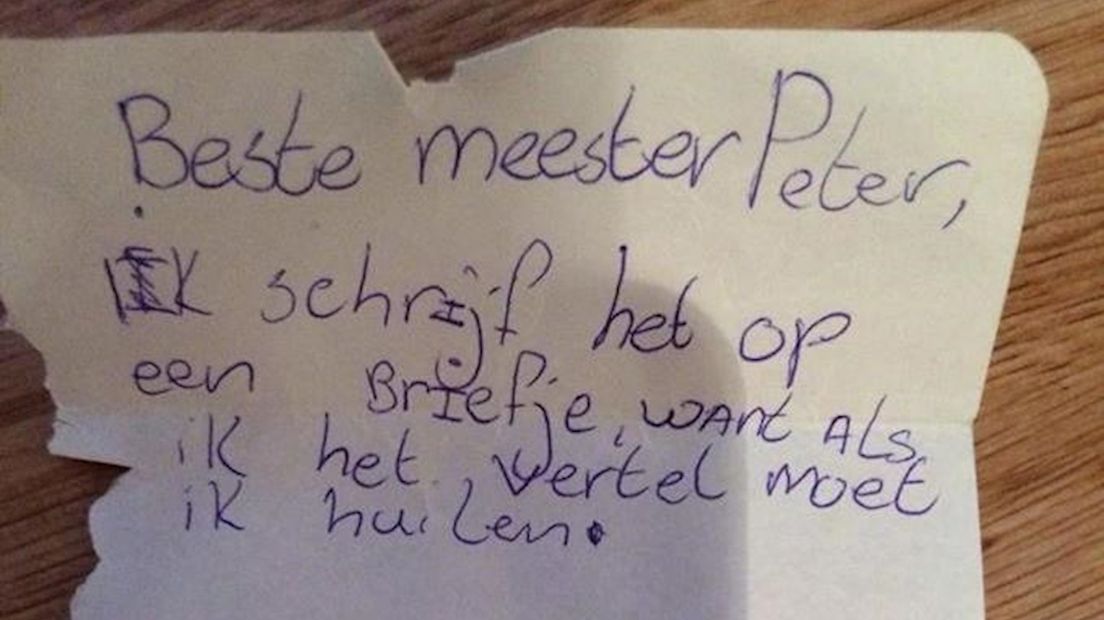 Beste meester Peter,
Ik schrijf het op
een Briefje, want Als
ik het vertel moet
ik huilen.